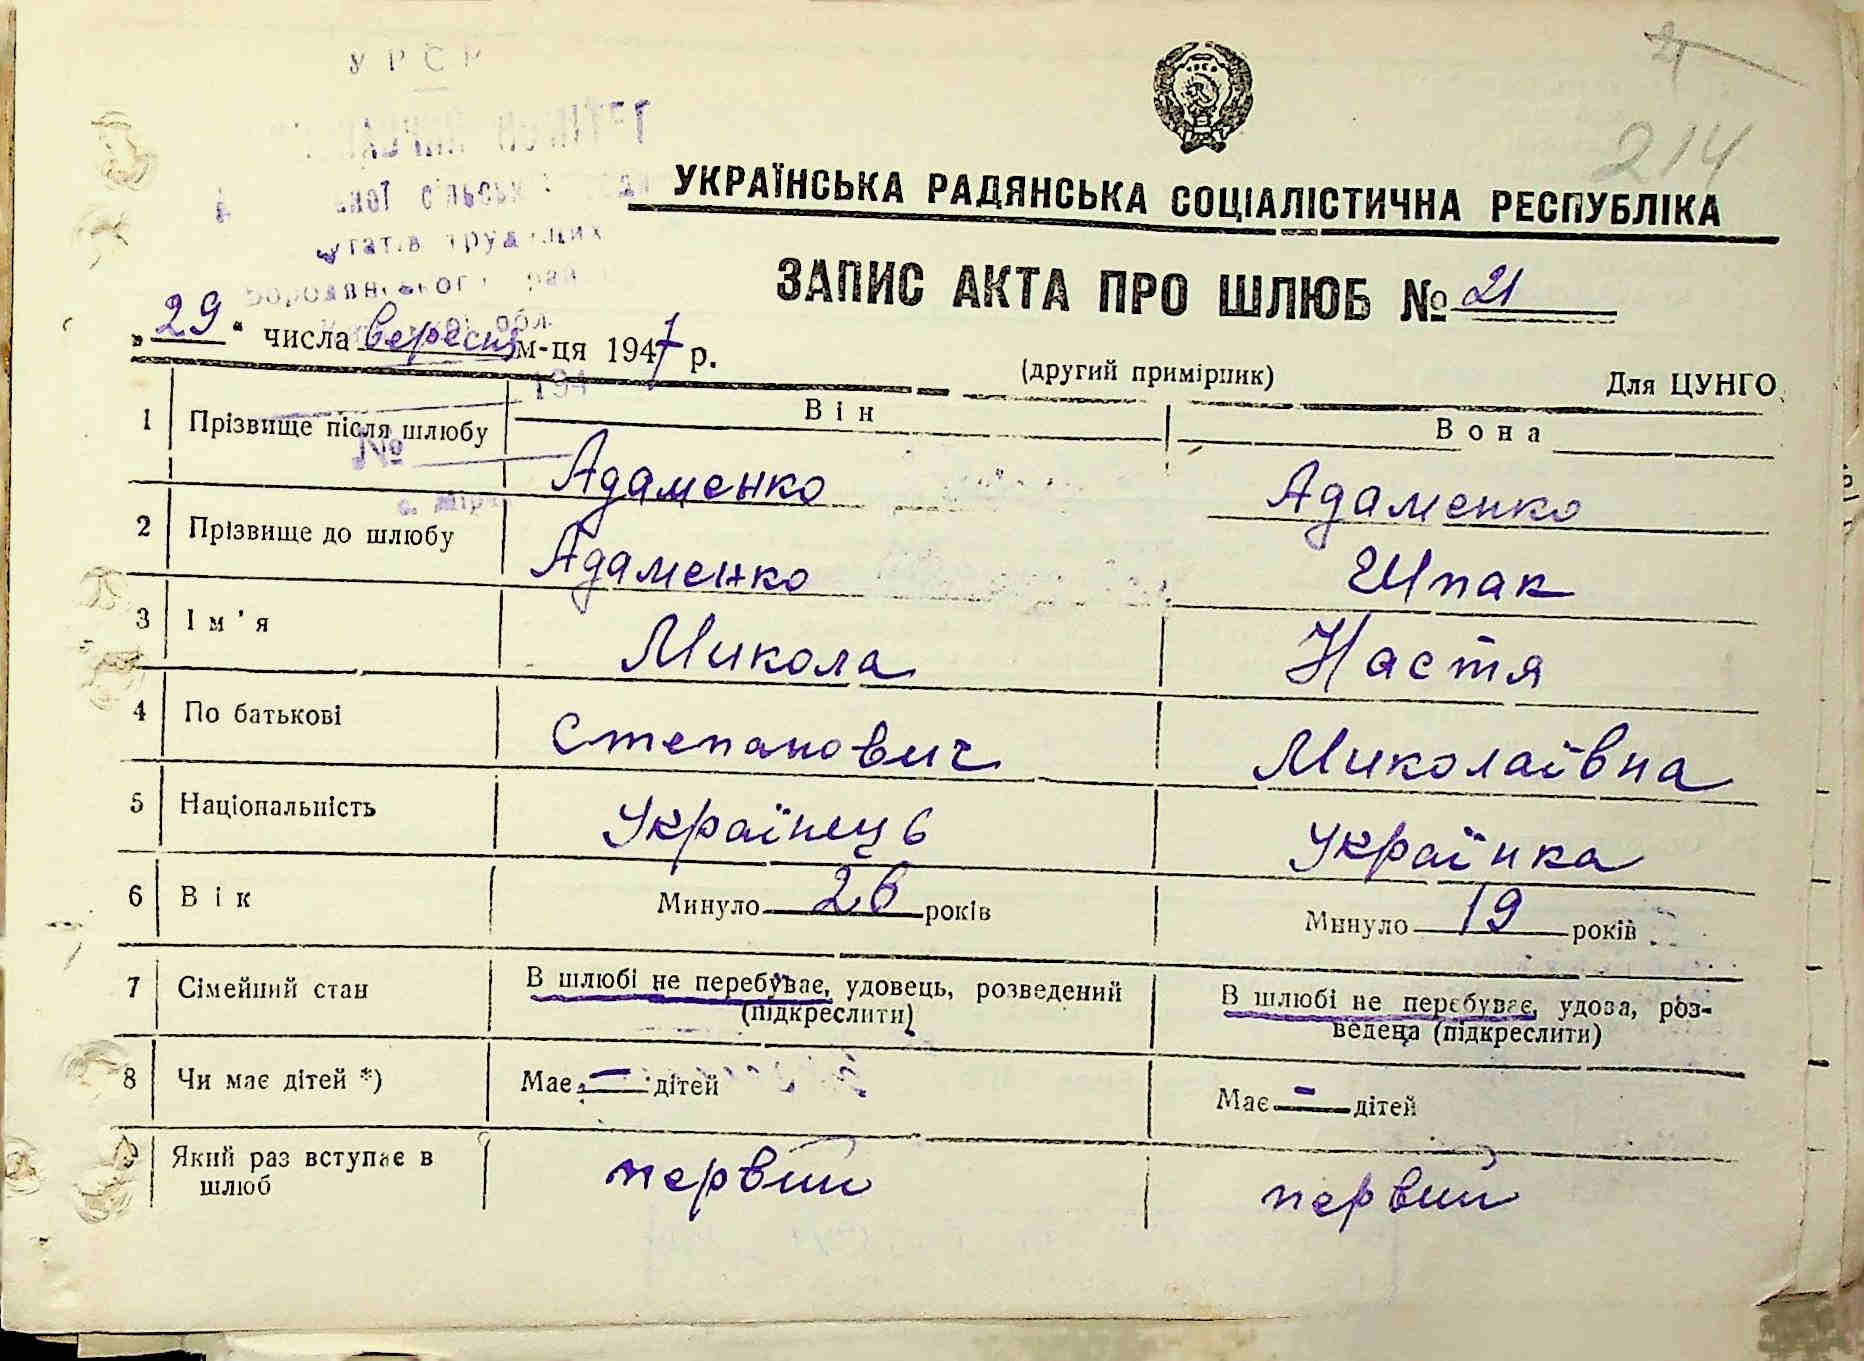 УРСР
214
сільськ
Бородянського рай
обл.
УКРАЇНСЬКА РАДЯНСЬКА СОЦІАЛІСТИЧНА РЕСПУБЛІКА
ЗАПИС АКТА ПРО ШЛЮБ № 21
„29“ числа вересня м-ця 1947 р.
(другий примірник) Для ЦУНГО
194
Він Вона
1 Прізвище після шлюбу Адаменко Адаменко
№
2 Прізвище до шлюбу Адаменко Шпак
3 Ім'я Микола Настя
4 По батькові Степанович Миколаївна
5 Національність Українець Українка
6 Вік Минуло 26 років Минуло 19 років
7 Сімейний стан В шлюбі не перебуває, удовець, розведений В шлюбі не перебуває, удова, роз-
(підкреслити) ведена (підкреслити)
8 Чи має дітей *) Має - дітей Має - дітей
9 Який раз вступає в первий первий
шлюб